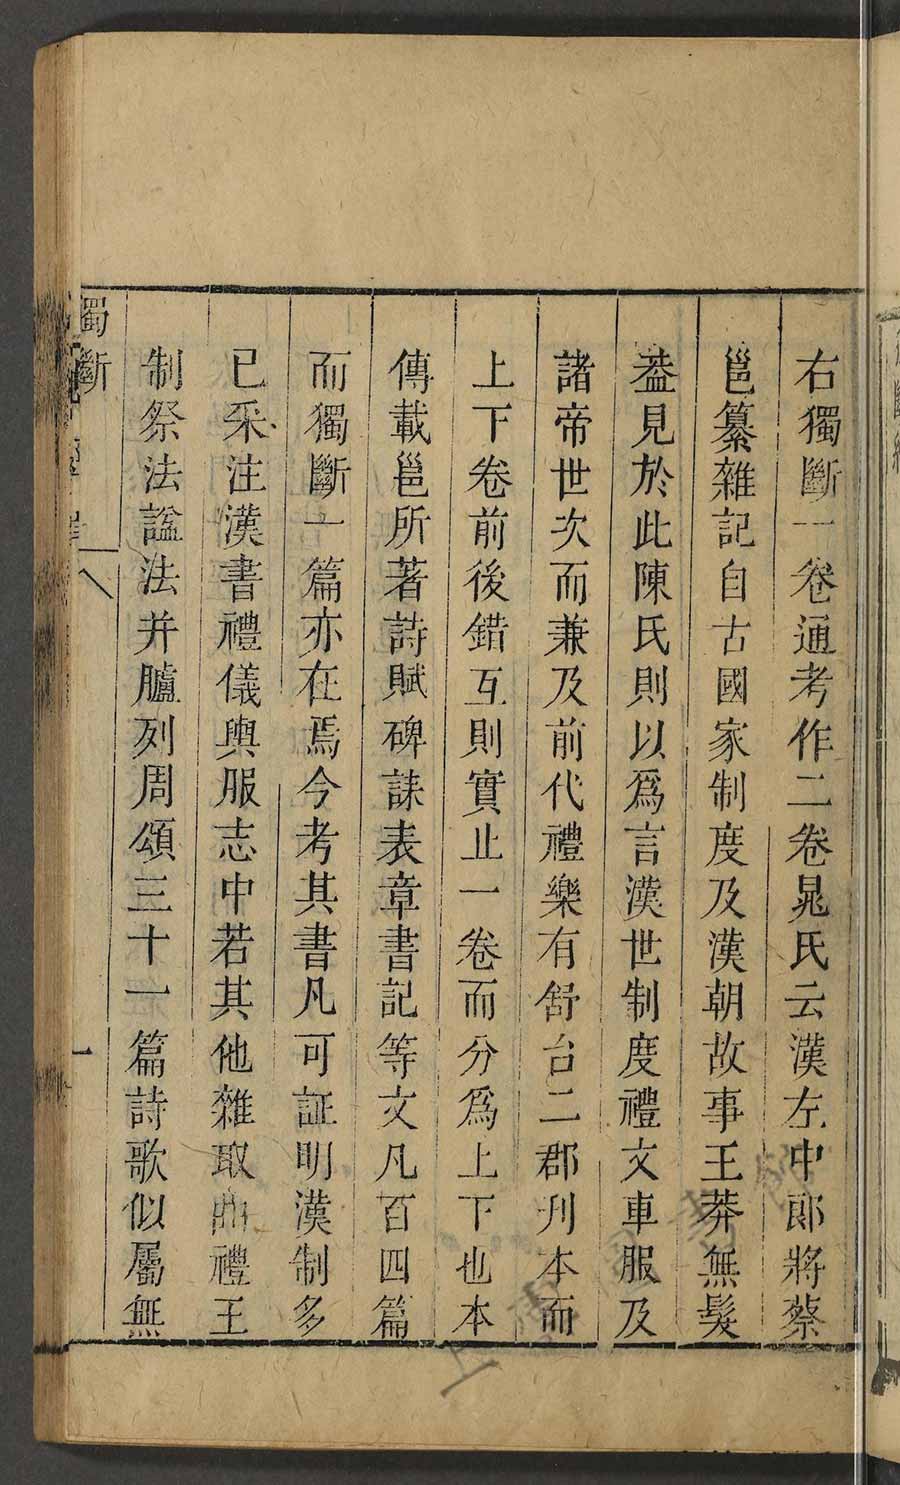 右獨斷一卷通考作二卷晁氏云漢左中郎將蔡
邕纂雜記自古國家制度及漢朝故事王莽無髮
葢見於此陳氏則以爲言漢世制度禮文車服及
諸帝世次而兼及前代禮樂有舒台二郡刋本而
上下卷前後錯互則實止一卷而分爲上下也本
傳載邕所著詩賦碑誄表章書記等文凡百四篇
而獨斷一篇亦在焉今考其書凡可証明漢制多
已采注漢書禮儀輿服志中若其他雜取曲禮王
制祭法諡法并臚列周頌三十一篇詩歌似屬無
獨斷
一